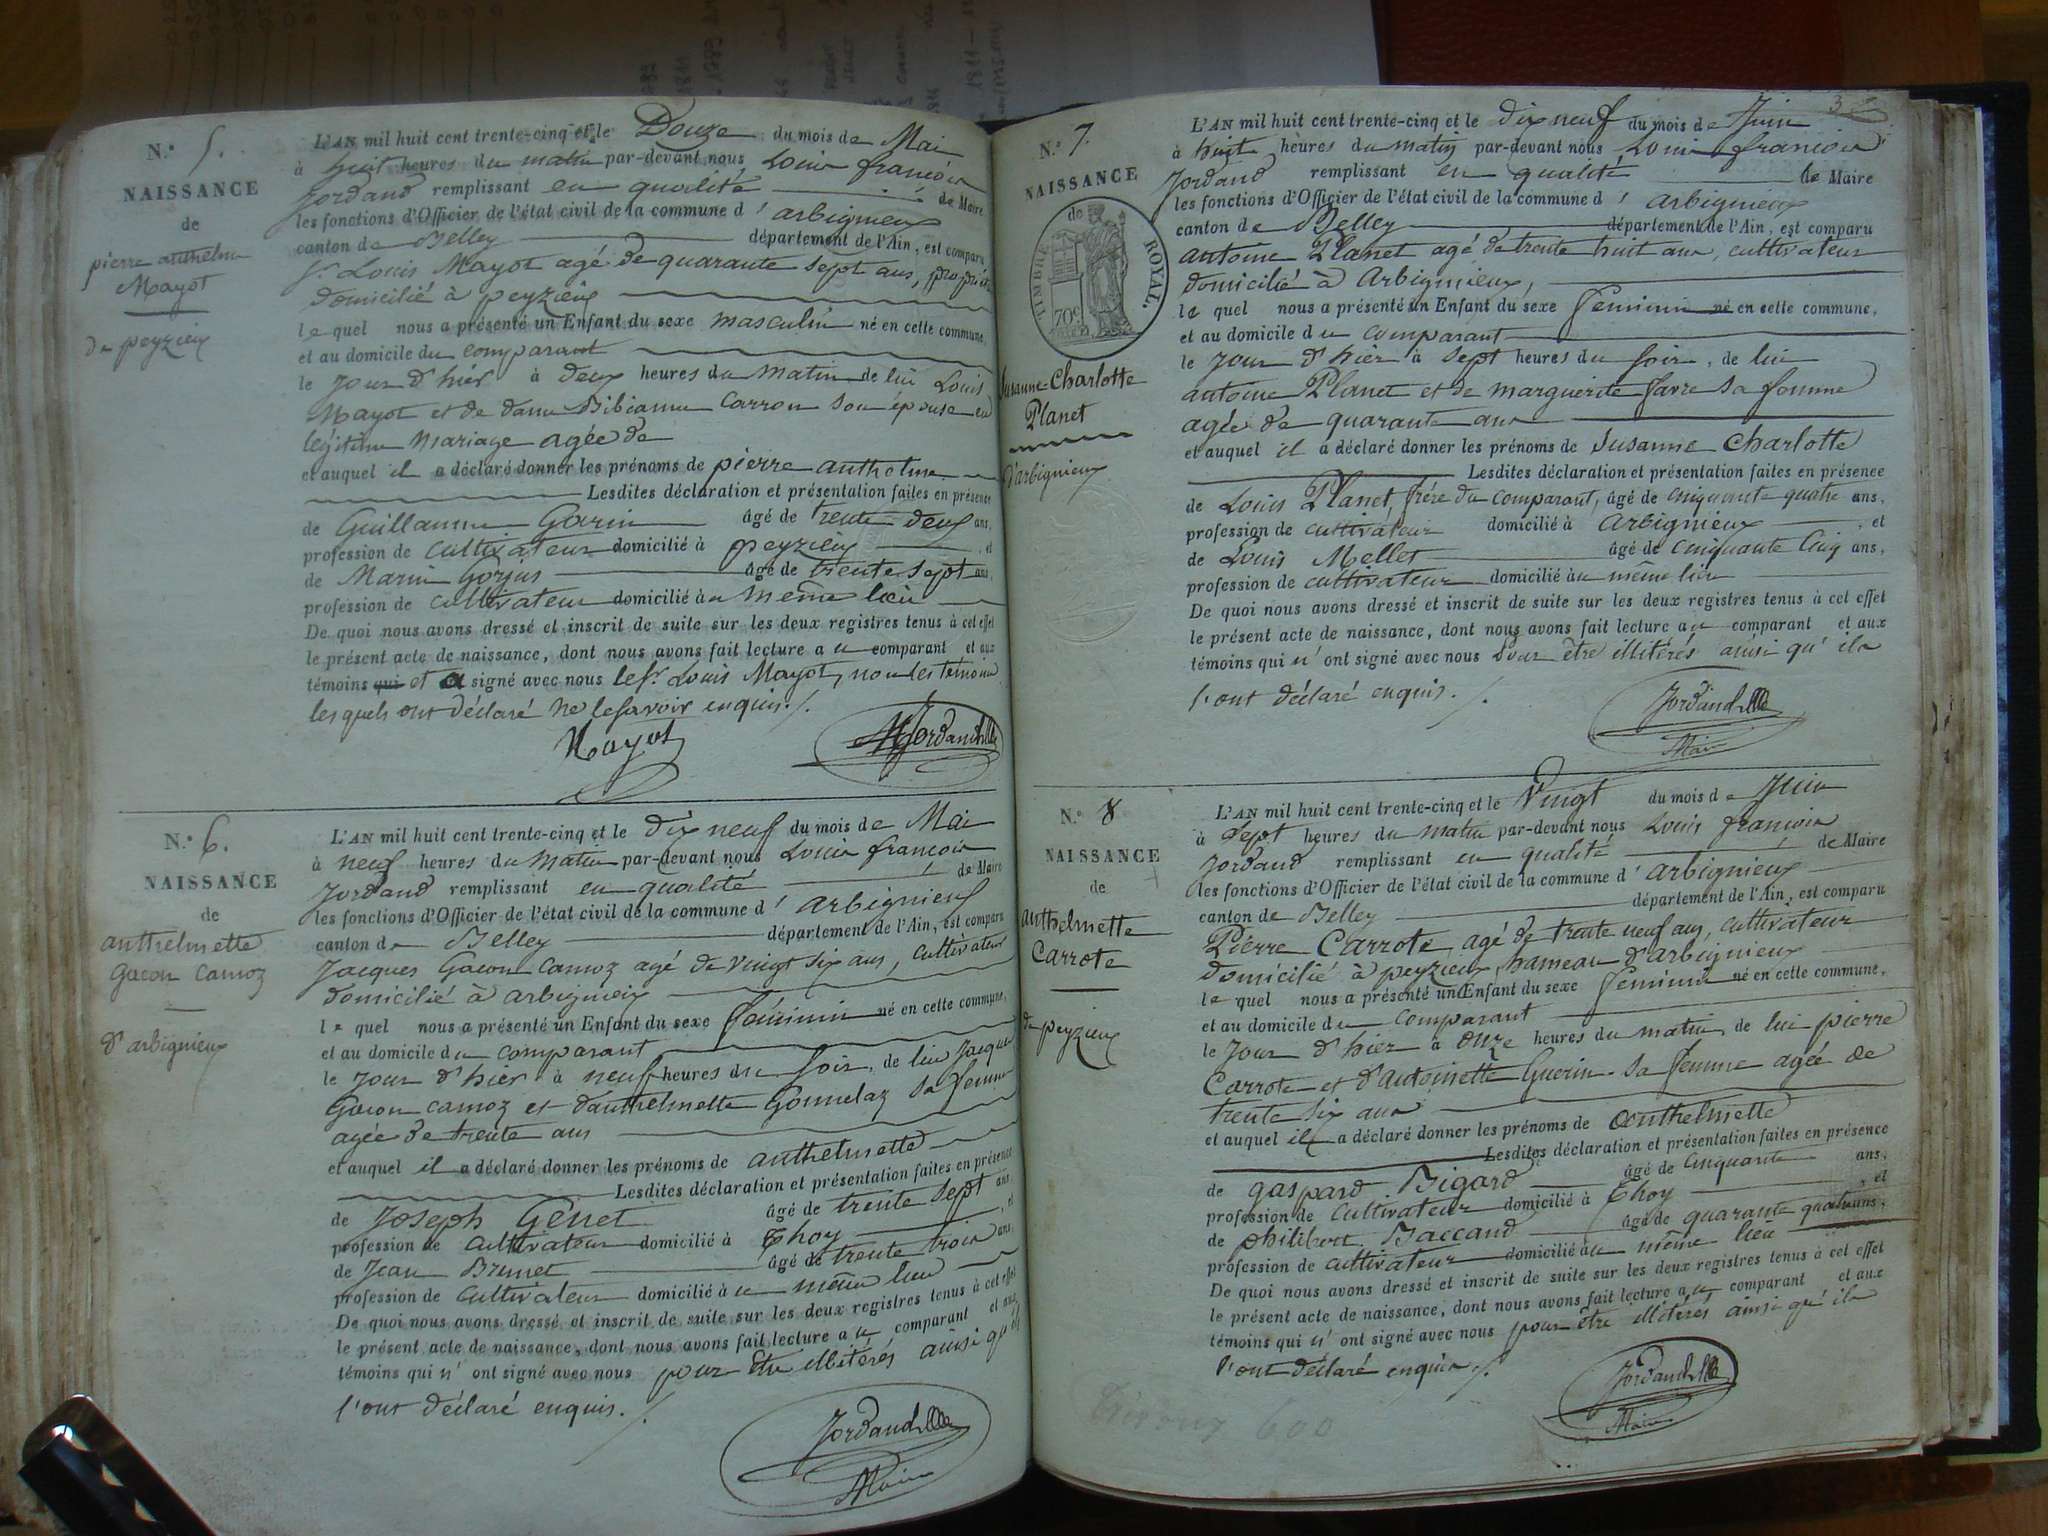 N.° 5.
NAISSANCE
de
pierre anthelme
Mayot
de peyzieu
L'AN mil huit cent trente-cinq et le Douze du mois de Mai
à huit heures du matin par-devant nous Louis françois
Jordand remplissant en qualité de Maire
les fonctions d'Officier de l'état civil de la commune d'arbignieux
canton de Belley département de l'Ain, est comparu
Sr Louis Mayot agé de quarante sept ans, propriét
domicilié à peyzieu
le quel nous a présenté un Enfant du sexe masculin né en cette commune,
et au domicile du comparant
le jour d'hier à deux heures du matin de lui Louis
Mayot et de dame Bibianne Carron son épouse en
légitime mariage agée de
et auquel il a déclaré donner les prénoms de pierre anthelme
Lesdites déclaration et présentation faites en présence
de Guillaume Gorin âgé de trente deux ans,
profession de cultivateur domicilié à peyzieu, et
de Marin Gorjus âgé de trente sept ans,
profession de cultivateur domicilié au même lieu
De quoi nous avons dressé et inscrit de suite sur les deux registres tenus à cet effet
le présent acte de naissance, dont nous avons fait lecture au comparant et aux
témoins qui et a signé avec nous le Sr Louis Mayot, non les témoins
lesquels ont déclaré ne le savoir enquis./.
Mayot
Jordand
N.° 6.
NAISSANCE
de
anthelmette
Gacon camoz
d'arbignieux
L'AN mil huit cent trente-cinq et le dix neuf du mois de Mai
à neuf heures du matin par-devant nous Louis françois
Jordand remplissant en qualité de Maire
les fonctions d'Officier de l'état civil de la commune d'arbignieux
canton de Belley département de l'Ain, est comparu
Jacques Gacon camoz agé de vingt six ans, cultivateur
domicilié à arbignieux
le quel nous a présenté un Enfant du sexe féminin né en cette commune,
et au domicile du comparant
le jour d'hier à neuf heures du soir, de lui Jacques
Gacon camoz et d'anthelmette Gonnelaz sa femme
agée de trente ans
et auquel il a déclaré donner les prénoms de anthelmette
Lesdites déclaration et présentation faites en présence
de Joseph Genet âgé de trente sept ans
profession de cultivateur domicilié à Thoy, et
de Jean Brunet âgé de trente trois ans,
profession de cultivateur domicilié au même lieu
De quoi nous avons dressé et inscrit de suite sur les deux registres tenus à cet effet
le présent acte de naissance, dont nous avons fait lecture au comparant et aux
témoins qui n'ont signé avec nous pour être illitérés ainsi qu'ils
l'ont déclaré enquis./.
Jordand
Maire
3
N.° 7.
NAISSANCE
de
TIMBRE ROYAL.
70c
Susanne Charlotte
Planet
d'arbignieux
L'AN mil huit cent trente-cinq et le dix neuf du mois de Juin
à huit heures du matin par-devant nous Louis françois
Jordand remplissant en qualité de Maire
les fonctions d'Officier de l'état civil de la commune d'arbignieux
canton de Belley département de l'Ain, est comparu
antoine Planet agé de trente huit ans, cultivateur
domicilié à Arbignieux,
le quel nous a présenté un Enfant du sexe feminin né en cette commune,
et au domicile du comparant
le jour d'hier à sept heures du soir, de lui
antoine Planet et de marguerite favre sa femme
agée de quarante ans
et auquel il a déclaré donner les prénoms de Susanne Charlotte
Lesdites déclaration et présentation faites en présence
de Louis Planet, frére du comparant, âgé de cinquante quatre ans,
profession de cultivateur domicilié à arbignieux, et
de Louis Mellet âgé de cinquante cinq ans,
profession de cultivateur domicilié au même lieu
De quoi nous avons dressé et inscrit de suite sur les deux registres tenus à cet effet
le présent acte de naissance, dont nous avons fait lecture au comparant et aux
témoins qui n'ont signé avec nous pour être illitérés ainsi qu'ils
l'ont déclaré enquis./.
Jordand
Maire
N.° 8
NAISSANCE
de
anthelmette
Carrote
de peyzieu
L'AN mil huit cent trente-cinq et le Vingt du mois de Juin
à sept heures du matin par-devant nous Louis françois
Jordand remplissant en qualité de Maire
les fonctions d'Officier de l'état civil de la commune d'arbignieux
canton de Belley département de l'Ain, est comparu
Pierre Carrote agé de trente neuf ans, cultivateur
domicilié à peyzieux, hameau d'arbignieux
le quel nous a présenté un Enfant du sexe feminin né en cette commune,
et au domicile du comparant
le jour d'hier à onze heures du matin, de lui pierre
Carrote et d'antoinette Guerin sa femme agée de
trente six ans
et auquel il a déclaré donner les prénoms de anthelmette
Lesdites déclaration et présentation faites en présence
de gaspard Bigard âgé de cinquante ans,
profession de cultivateur domicilié à Thoy, et
de philibert Baccand âgé de quarante quatre ans,
profession de cultivateur domicilié au même lieu
De quoi nous avons dressé et inscrit de suite sur les deux registres tenus à cet effet
le présent acte de naissance, dont nous avons fait lecture au comparant et aux
témoins qui n'ont signé avec nous pour être illitérés ainsi qu'ils
l'ont déclaré enquis./.
Jordand
Maire
600